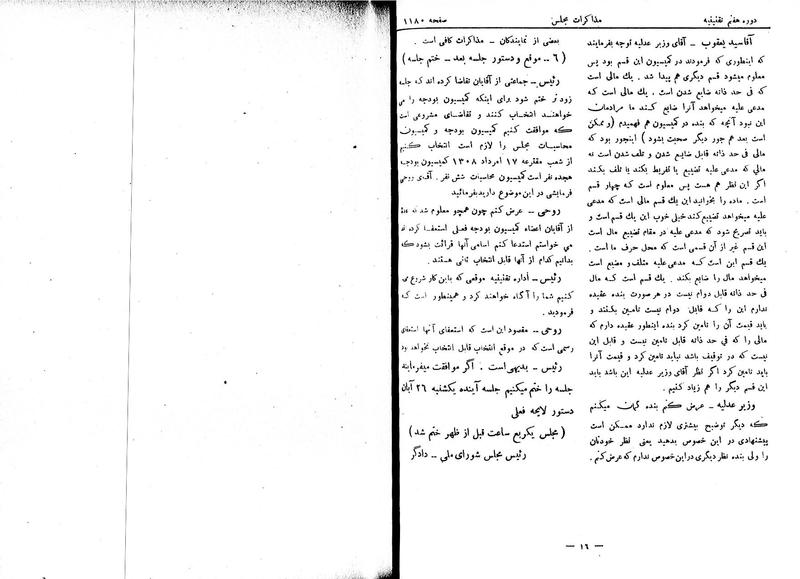 دوره هفتم تقنینیه
مذاکرات مجلس
صفحه ۱۱۸۰
آقاسید یعقوب ــ آقای وزیر عدلیه توجه بفرمایند
که اینطوری که فرمودند در کمیسیون این قسم بود پس
معلوم میشود قسم دیگری هم پیدا شد . یك مالی است
که فی حد ذاته ضایع شدن است . یك مالی است که
مدعی علیه میخواهد آنرا ضایع کند ما مرادمان
این نبود آنچه که بنده در کمیسیون هم فهمیدم (و ممکن
است بعد هم جور دیگر صحبت بشود) اینجور بود که
مالی فی حد ذاته قابل ضایع شدن و تلف شدن است نه
مالی که مدعی علیه تضییع یا تفریط بکند یا تلف بکند
اگر این نظر هم هست پس معلوم است که چهار قسم
است . ماده را بخوانید این یك قسم مالی است که مدعی
علیه میخواهد تضییع کند خیلی خوب این یك قسم است و
باید تصریح شود که مدعی علیه در مقام تضییع مال است
این قسم غیر از آن قسمی است که محل حرف ما است .
یك قسم این است که مدعی علیه متلف و مضیع است
میخواهد مال را ضایع بکند . یك قسم است که مال
فی حد ذاته قابل دوام نیست در هر صورت بنده عقیده
ندارم این را که قابل دوام نیست تامین بکنند و
باید قیمت آن را تامین کرد بنده اینطور عقیده دارم که
مالی را که فی حد ذاته قابل تامین نیست و قابل این
نیست که در توقیف باشد نباید تامین کرد و قیمت آنرا
باید تامین کرد اگر نظر آقای وزیر عدلیه این باشد باید
این قسم دیگر را هم زیاد کنیم .
وزیر عدلیه ــ عرض کنم بنده گمان میکنم
که دیگر توضیح بیشتری لازم ندارد ممکن است
پیشنهادی در این خصوص بدهید یعنی نظر خودتان
را ولی بنده نظر دیگری در این خصوص ندارم که عرض کنم .
بعضی از نمایندگان ــ مذاکرات کافی است .
( ۶ ــ موقع و دستور جلسه بعد ــ ختم جلسه )
رئیس ــ جماعتی از آقایان تقاضا کرده اند که جلسه
زودتر ختم شود برای اینکه کمیسیون بودجه را می
خواهند انتخاب کنند و تقاضای مشروعی است
که موافقت کنیم کمیسیون بودجه و کمیسیون
محاسبات مجلس را لازم است انتخاب کنیم
از شعب مقترعه ۱۷ امرداد ۱۳۰۸ کمیسیون بودجه
هجده نفر است کمیسیون محاسبات شش نفر . آقای روحی
فرمایشی در این موضوع دارید بفرمائید
روحی ــ عرض کنم چون همچو معلوم شد که عدۀ
از آقایان اعضاء کمیسیون بودجه فعلی استعفا کرده اند
می خواستم استدعا کنم اسامی آنها قرائت بشود که
بدانیم کدام از آنها قابل انتخاب ثانی هستند .
رئیس ــ اداره تقنینیه موقعی که باین کار شروع می
کنیم شما را آگاه خواهند کرد و همینطور است که
فرمودید .
روحی ــ مقصود این است که استعفای آنها استعفای
رسمی است که در موقع انتخاب قابل انتخاب نخواهد بود
رئیس ــ بدیهی است . اگر موافقت میفرمایند
جلسه را ختم میکنیم جلسه آینده یکشنبه ۲۶ آبان
دستور لایحه فعلی
( مجلس یکربع ساعت قبل از ظهر ختم شد )
رئیس مجلس شورای ملی ــ دادگر
ــ ۱۶ ــ